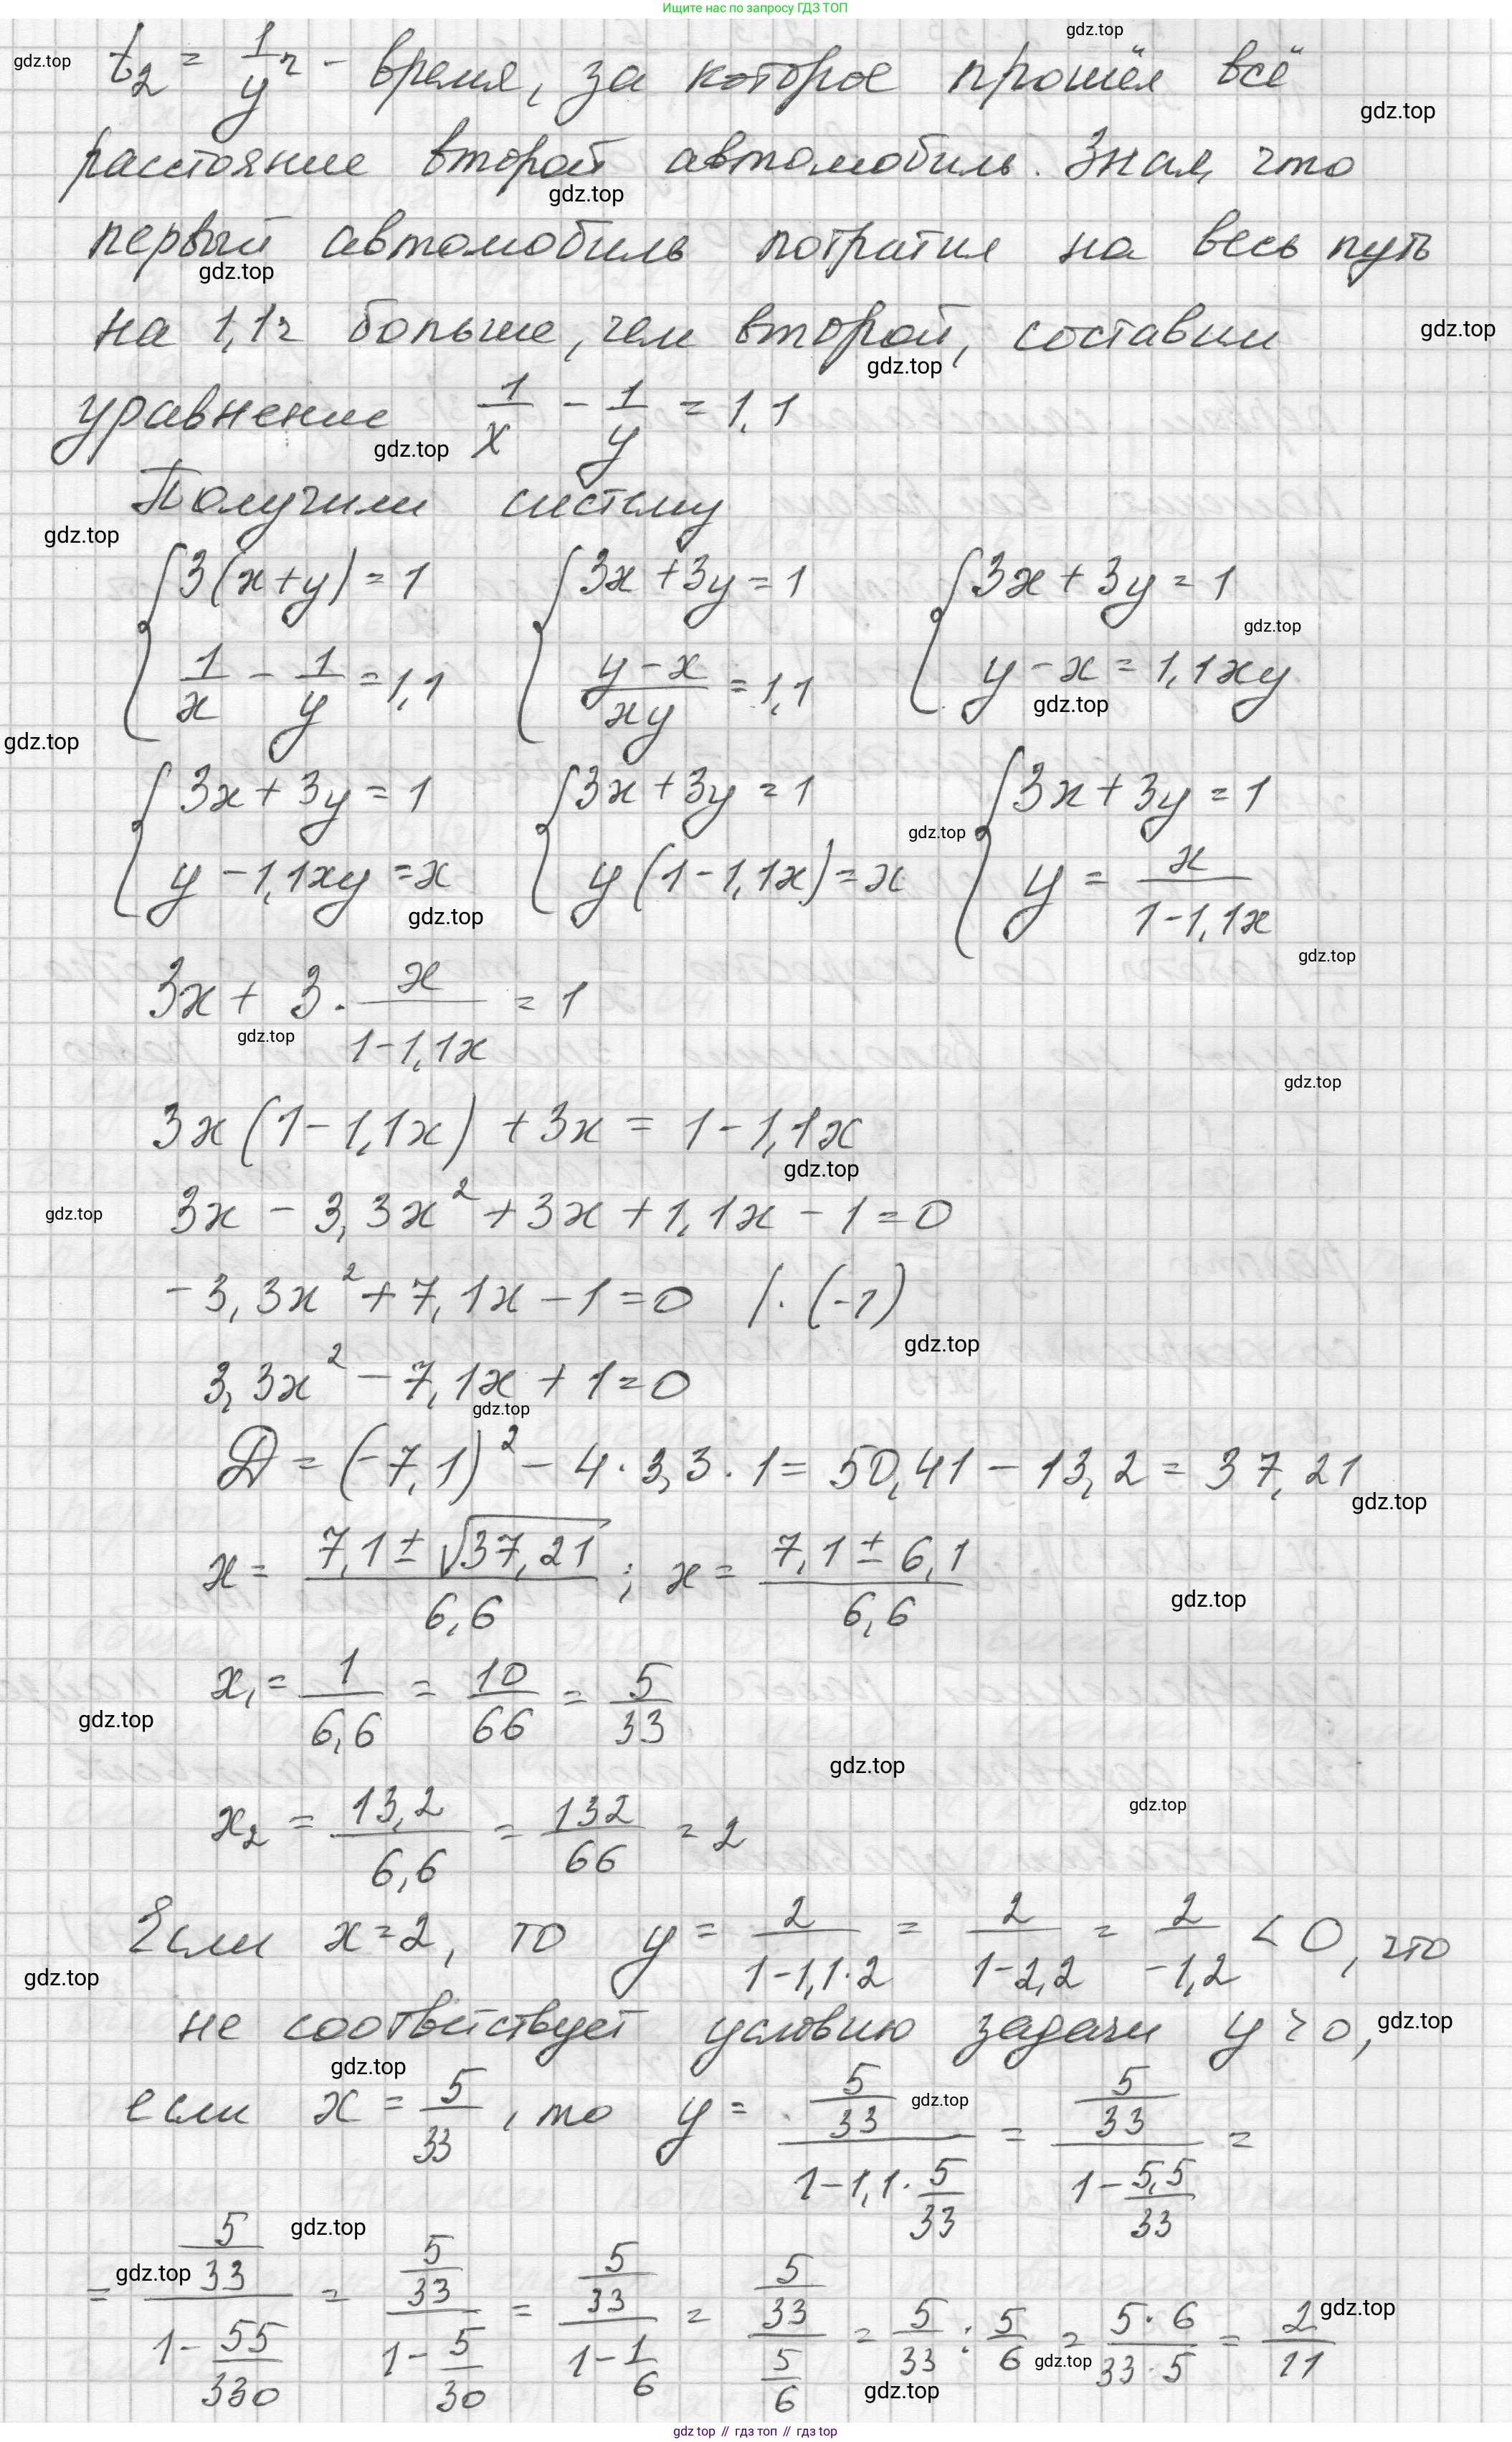 Ищите нас по запросу ГДЗ ТОП
t₂ = 1/y ч - время, за которое прошёл всё
расстояние второй автомобиль. Зная, что
первый автомобиль потратил на весь путь
на 1,1ч больше, чем второй, составим
уравнение 1/x - 1/y = 1,1
Получили систему
{3(x+y) = 1 {3x + 3y = 1 {3x + 3y = 1
{1/x - 1/y = 1,1 {(y - x)/(xy) = 1,1 {y - x = 1,1xy
{3x + 3y = 1 {3x + 3y = 1 {3x + 3y = 1
{y - 1,1xy = x {y(1 - 1,1x) = x {y = x/(1 - 1,1x)
3x + 3 · x/(1 - 1,1x) = 1
3x(1 - 1,1x) + 3x = 1 - 1,1x
3x - 3,3x² + 3x + 1,1x - 1 = 0
-3,3x² + 7,1x - 1 = 0 /· (-1)
3,3x² - 7,1x + 1 = 0
D = (-7,1)² - 4 · 3,3 · 1 = 50,41 - 13,2 = 37,21
x = (7,1 ± √37,21)/6,6 ; x = (7,1 ± 6,1)/6,6
x₁ = 1/6,6 = 10/66 = 5/33
x₂ = 13,2/6,6 = 132/66 = 2
Если x = 2, то y = 2/(1 - 1,1·2) = 2/(1 - 2,2) = 2/(-1,2) < 0, что
не соответствует условию задачи y > 0,
если x = 5/33, то y = (5/33)/(1 - 1,1·5/33) = (5/33)/(1 - 5,5/33) =
= (5/33)/(1 - 55/330) = (5/33)/(1 - 5/30) = (5/33)/(1 - 1/6) = (5/33)/(5/6) = 5/33 : 5/6 = (5·6)/(33·5) = 2/11
gdz top // гдз топ // гдз top